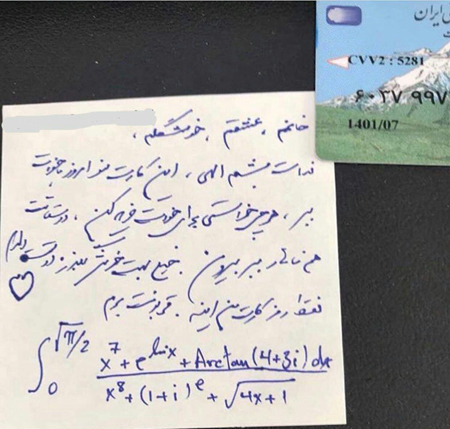 ی ایران
CVV2 : 5281
۶۰۳۷ ۹۹۷
1401/07
خانمم، عشقم، خوشگلم،
فدات بشم الهی، این کارت منو امروز با خودت
ببر، هرچی خواستی برای خودت خرید کن، دوستاتت
هم ناهار ببر بیرون. خیلی بهت خوش بگذره. دوست دارم
فقط رمز کارت من اینه. قربونت برم
∫₀^(√π/2) (x⁷ + e^(lnx) + Arctan(4+3i)dx) / (x⁸ + (1+i)^e + √(4x+1))